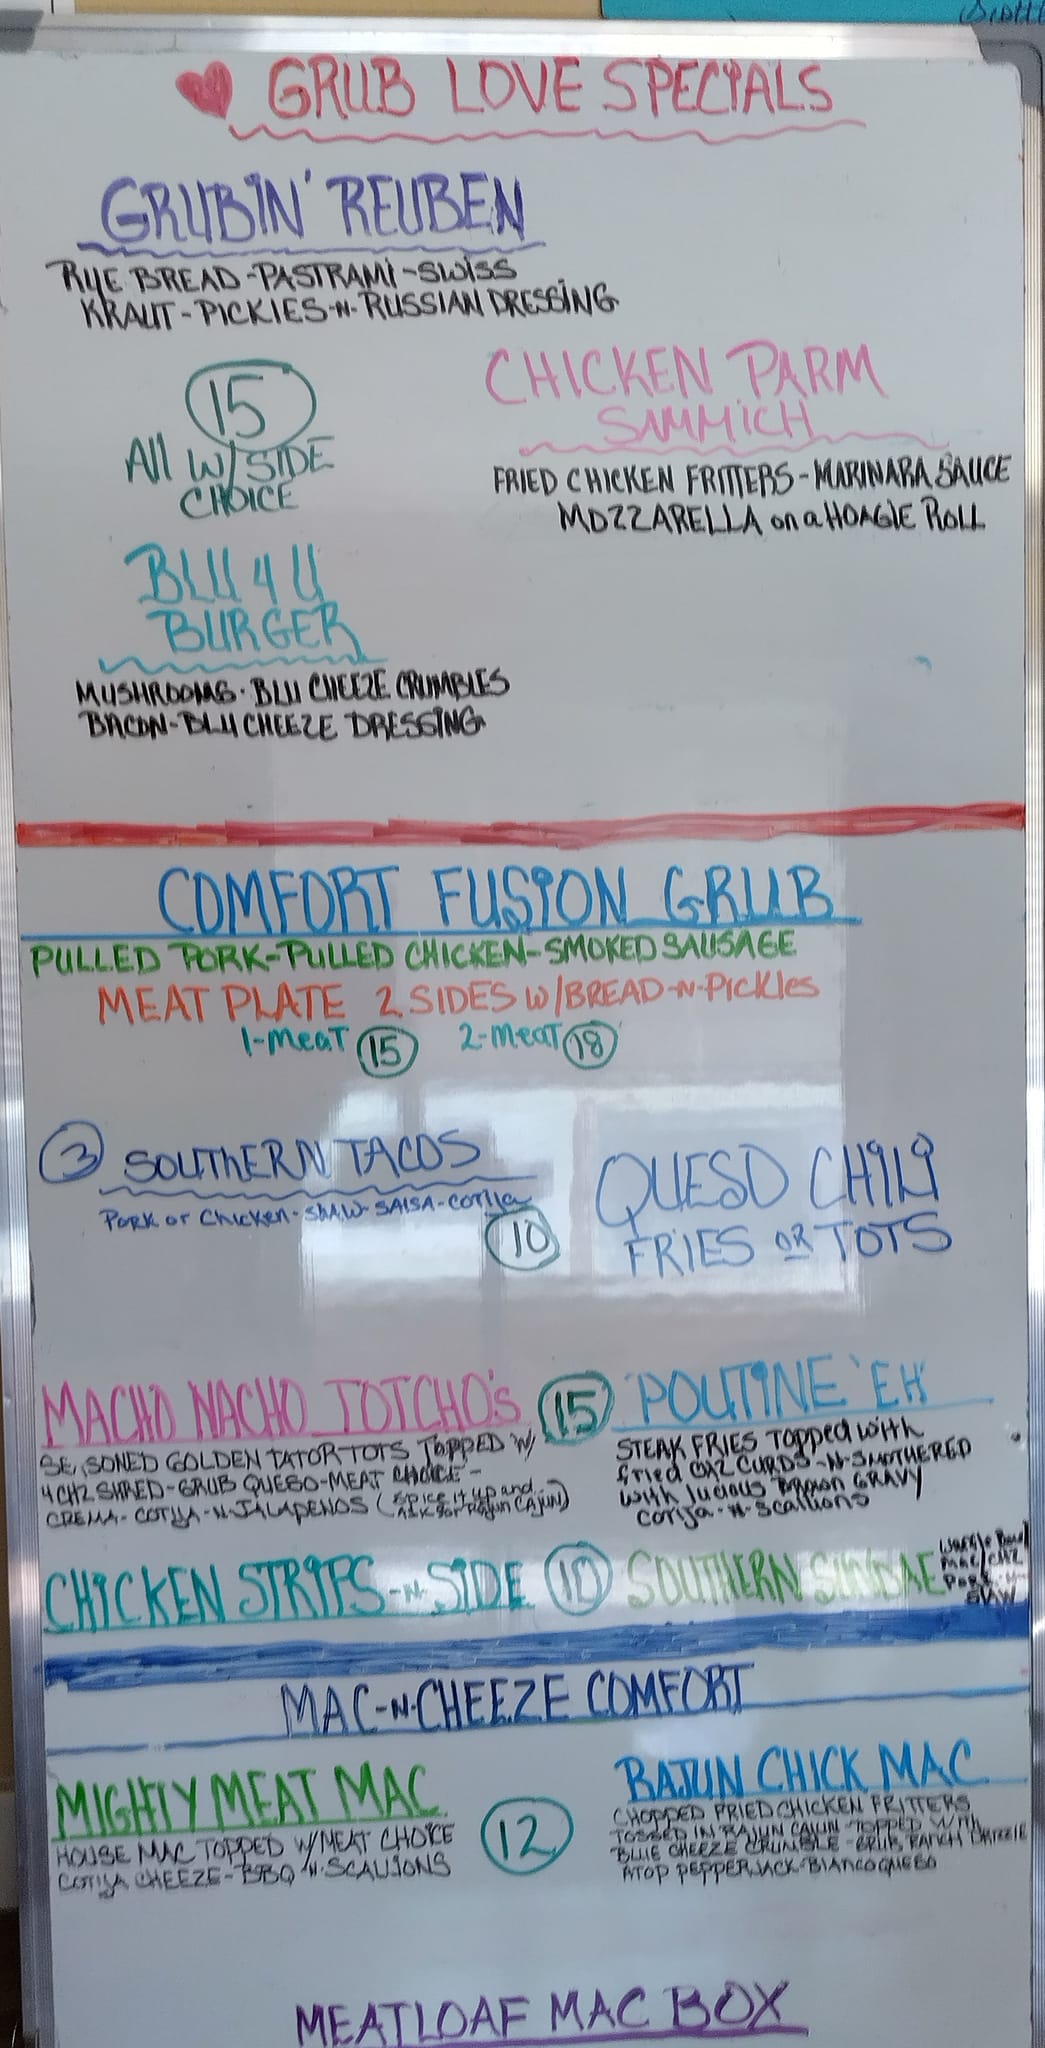 GRUB LOVE SPECIALS
GRUBIN' REUBEN
RYE BREAD-PASTRAMI-SWISS
KRAUT-PICKLES-N-RUSSIAN DRESSING
15
All W/SIDE
CHOICE
CHICKEN PARM
SAMMICH
FRIED CHICKEN FRITTERS-MARINARA SAUCE
MOZZARELLA on a HOAGIE ROLL
BLU 4 U
BURGER
MUSHROOMS-BLU CHEEZE CRUMBLES
BACON-BLU CHEEZE DRESSING
COMFORT FUSION GRUB
PULLED PORK-PULLED CHICKEN-SMOKED SAUSAGE
MEAT PLATE 2 SIDES W/BREAD-N-PICKLES
1-MEAT 15 2-MEAT 18
3 SOUTHERN TACOS
PORK or CHICKEN-SLAW-SALSA-COTIJA
10
QUESO CHILI
FRIES OR TOTS
MACHO NACHO TOTCHO'S
SE SONED GOLDEN TATOR TOTS TOPPED W/
4 CHZ SHRED-GRUB QUESO-MEAT CHOICE-
CREMA-COTIJA-N-JALAPENOS (SPICE it up and
ASK for Rajun CAJUN)
15
POUTINE 'EH'
STEAK FRIES TOPPED with
fried CHZ CURDS-N-SMOTHERED
with lucious Brown GRAVY
COTIJA-N-SCALLIONS
CHICKEN STRIPS-N-SIDE 10
SOUTHERN SUNDAE
Mac/CHZ
Pork-N-
SLAW
MAC-N-CHEEZE COMFORT
MIGHTY MEAT MAC
HOUSE MAC TOPPED W/MEAT CHOICE
COTIJA CHEEZE-BBQ-N-SCALLIONS
12
RAJUN CHICK MAC
CHOPPED FRIED CHICKEN FRITTERS
TOSSED IN RAJUN CAJUN TOPPED WITH
BLUE CHEEZE CRUMBLE-GRUB RANCH DRIZZLE
ATOP PEPPERJACK-BIANCO QUESO
MEATLOAF MAC BOX